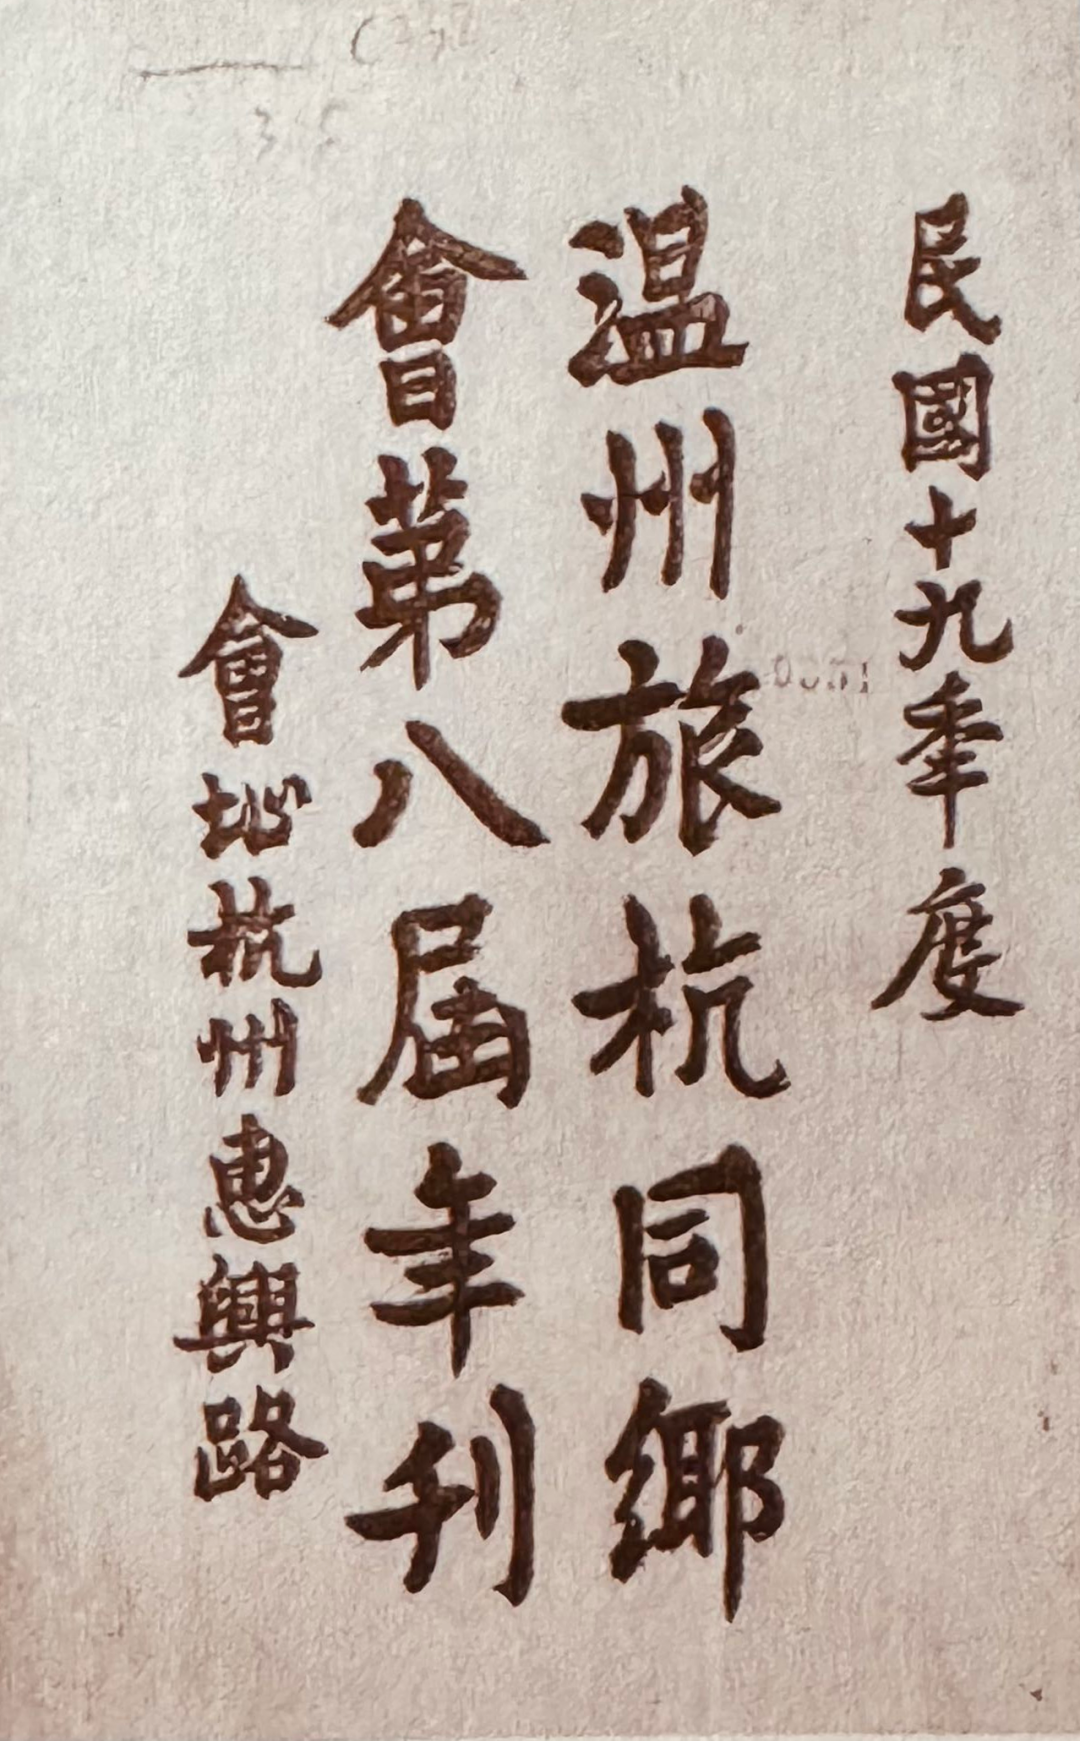 民國十九秊度
温州旅杭同鄉
會第八屆年刊
會址杭州惠興路